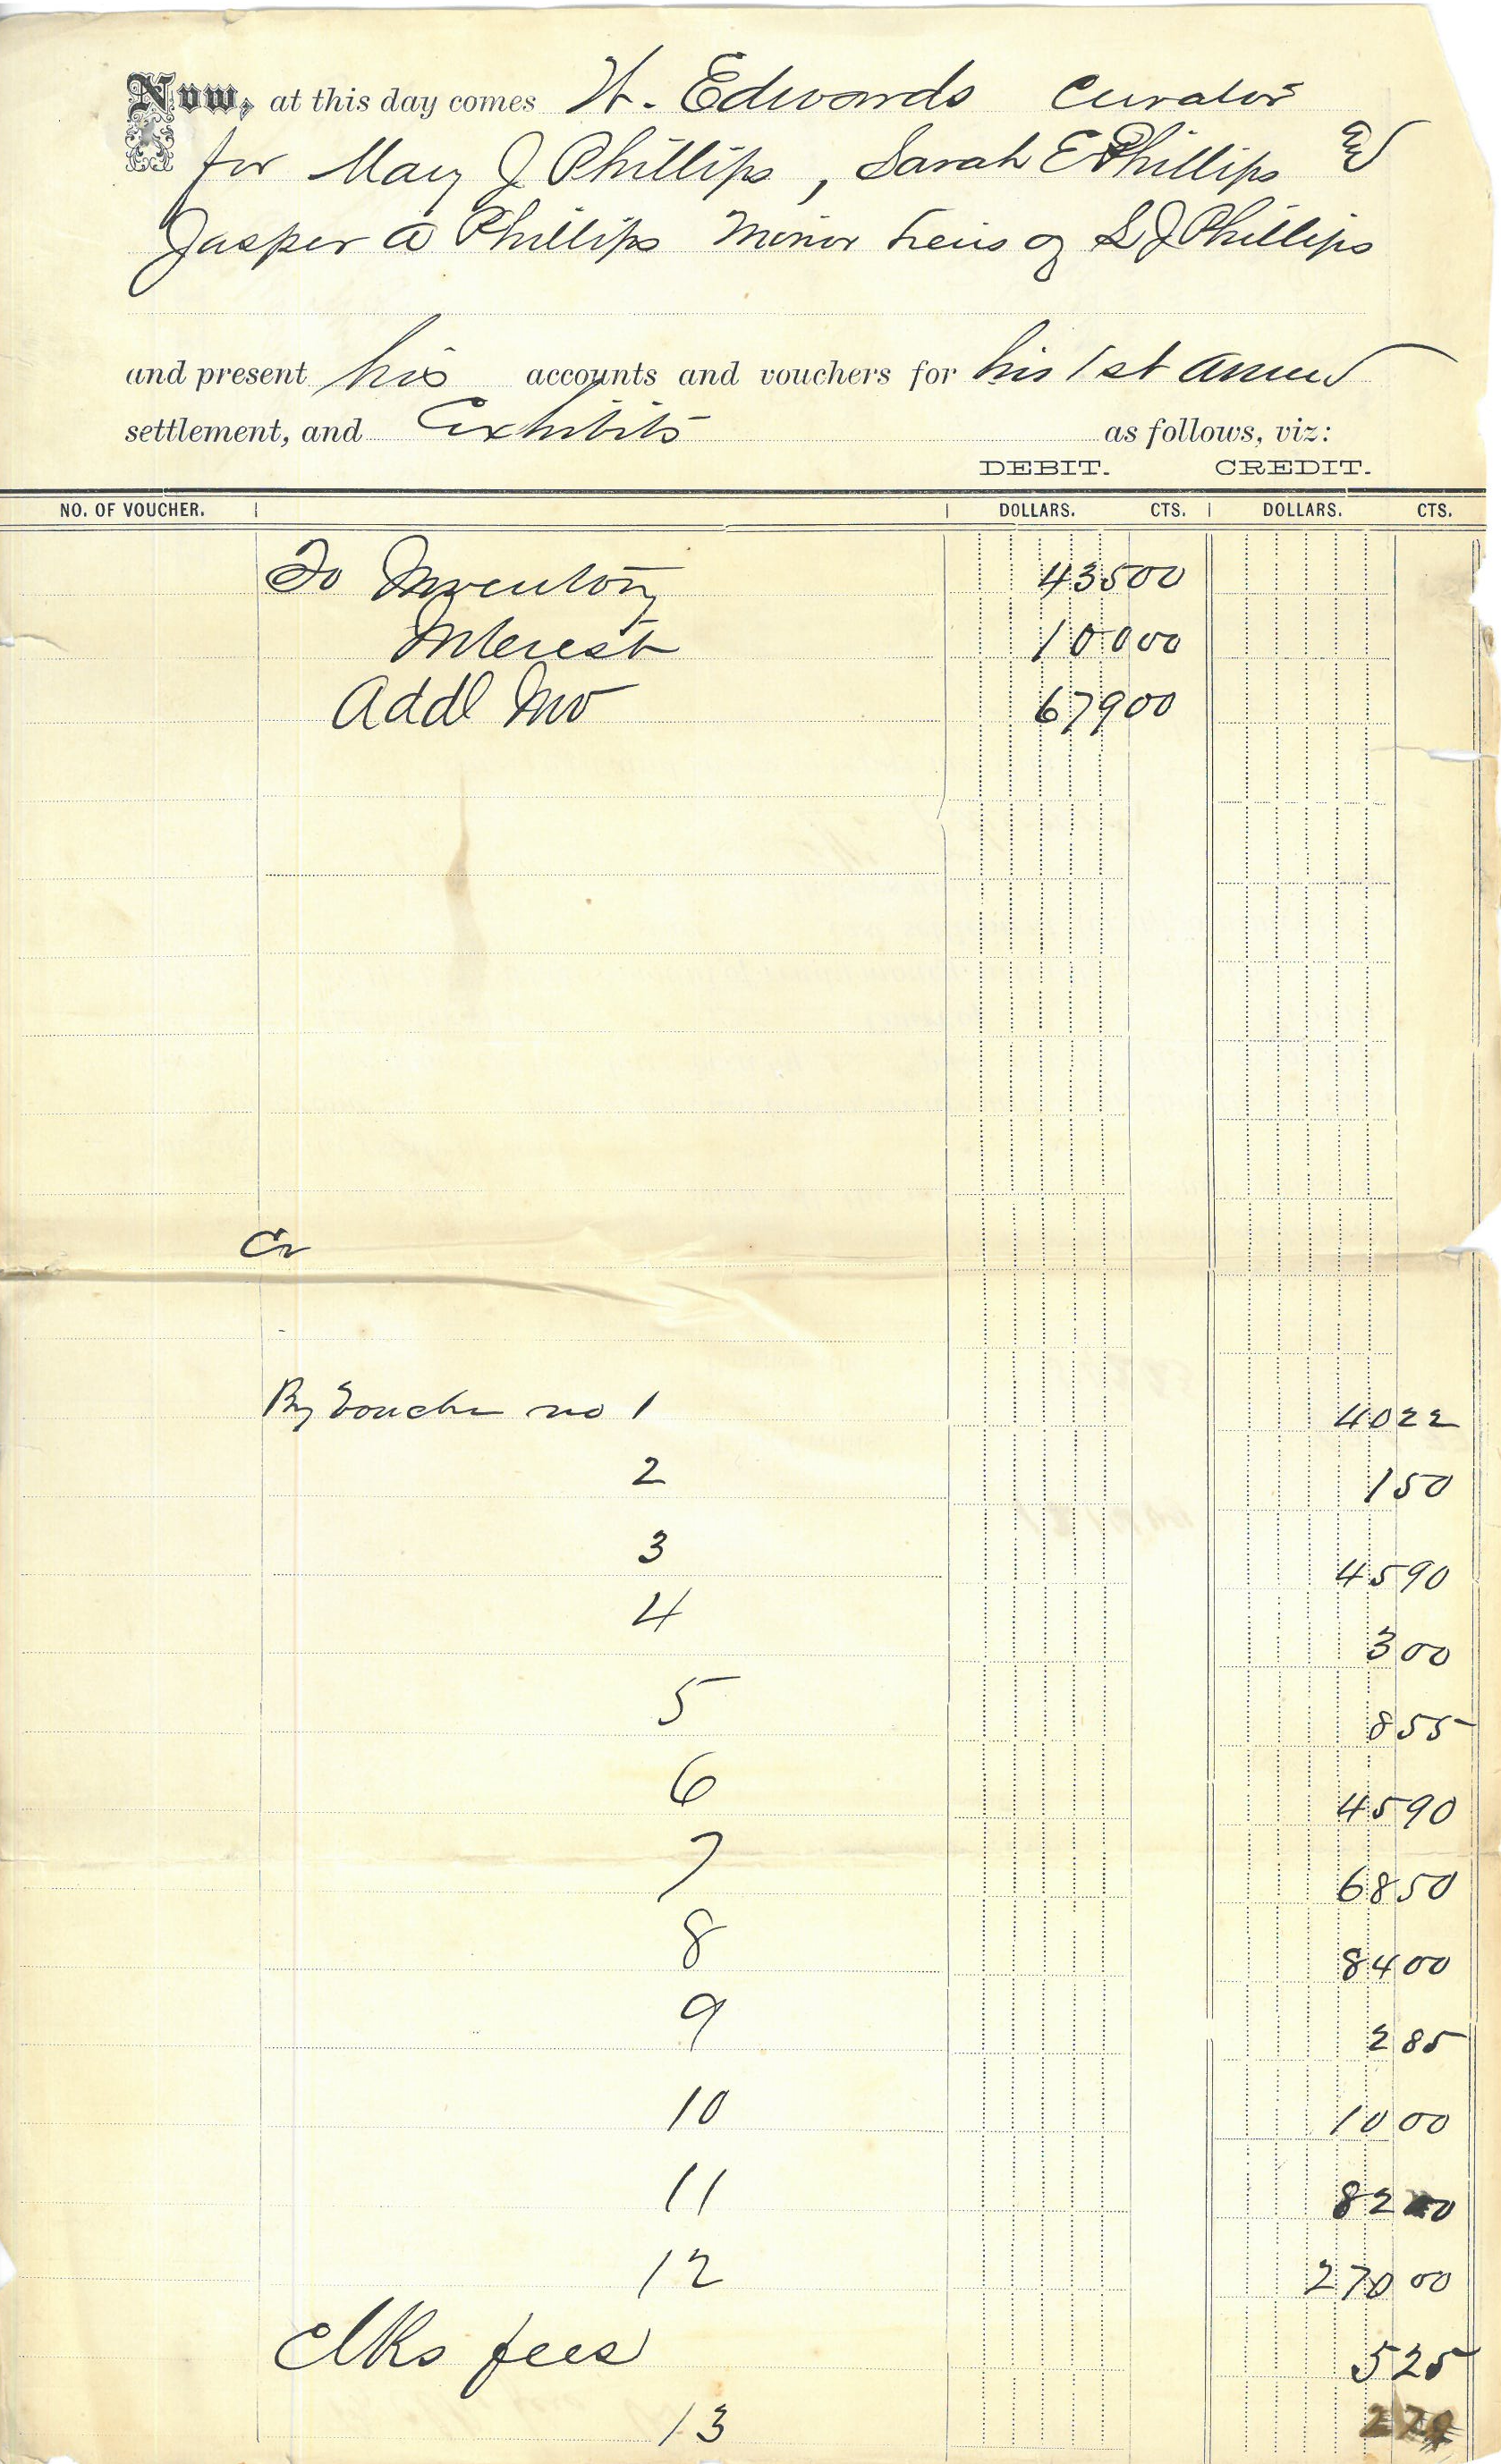 Now, at this day comes H. Edwards Curator
for Mary J Phillips, Sarah E Phillips and
Jasper A Phillips Minor heirs of S J Phillips
and present his accounts and vouchers for his 1st annual
settlement, and Exhibits as follows, viz:
DEBIT. CREDIT.
NO. OF VOUCHER. DOLLARS. CTS. DOLLARS. CTS.
To Inventory 435 00
Interest 100 00
Addl Inv 679 00
Cr
By Voucher no 1 40 22
2 1 50
3 45 90
4 3 00
5 8 55
6 45 90
7 68 50
8 84 00
9 2 85
10 10 00
11 82 00
12 270 00
Clks fees 5 25
13